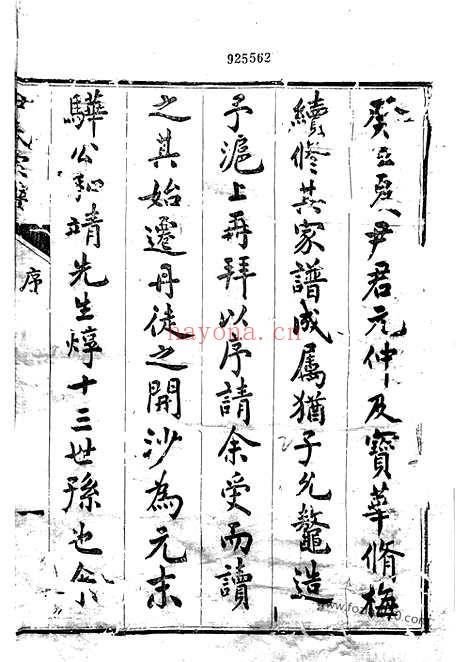 925562
癸丑夏尹君元仲及寶華脩梅
續修其家譜成屬猶子允鼇造
予滬上再拜以序請余受而讀
之其始遷丹徒之開沙為元末
驊公和靖先生焞十三世孫也余
尹氏宗譜
序
一
nayona.cn